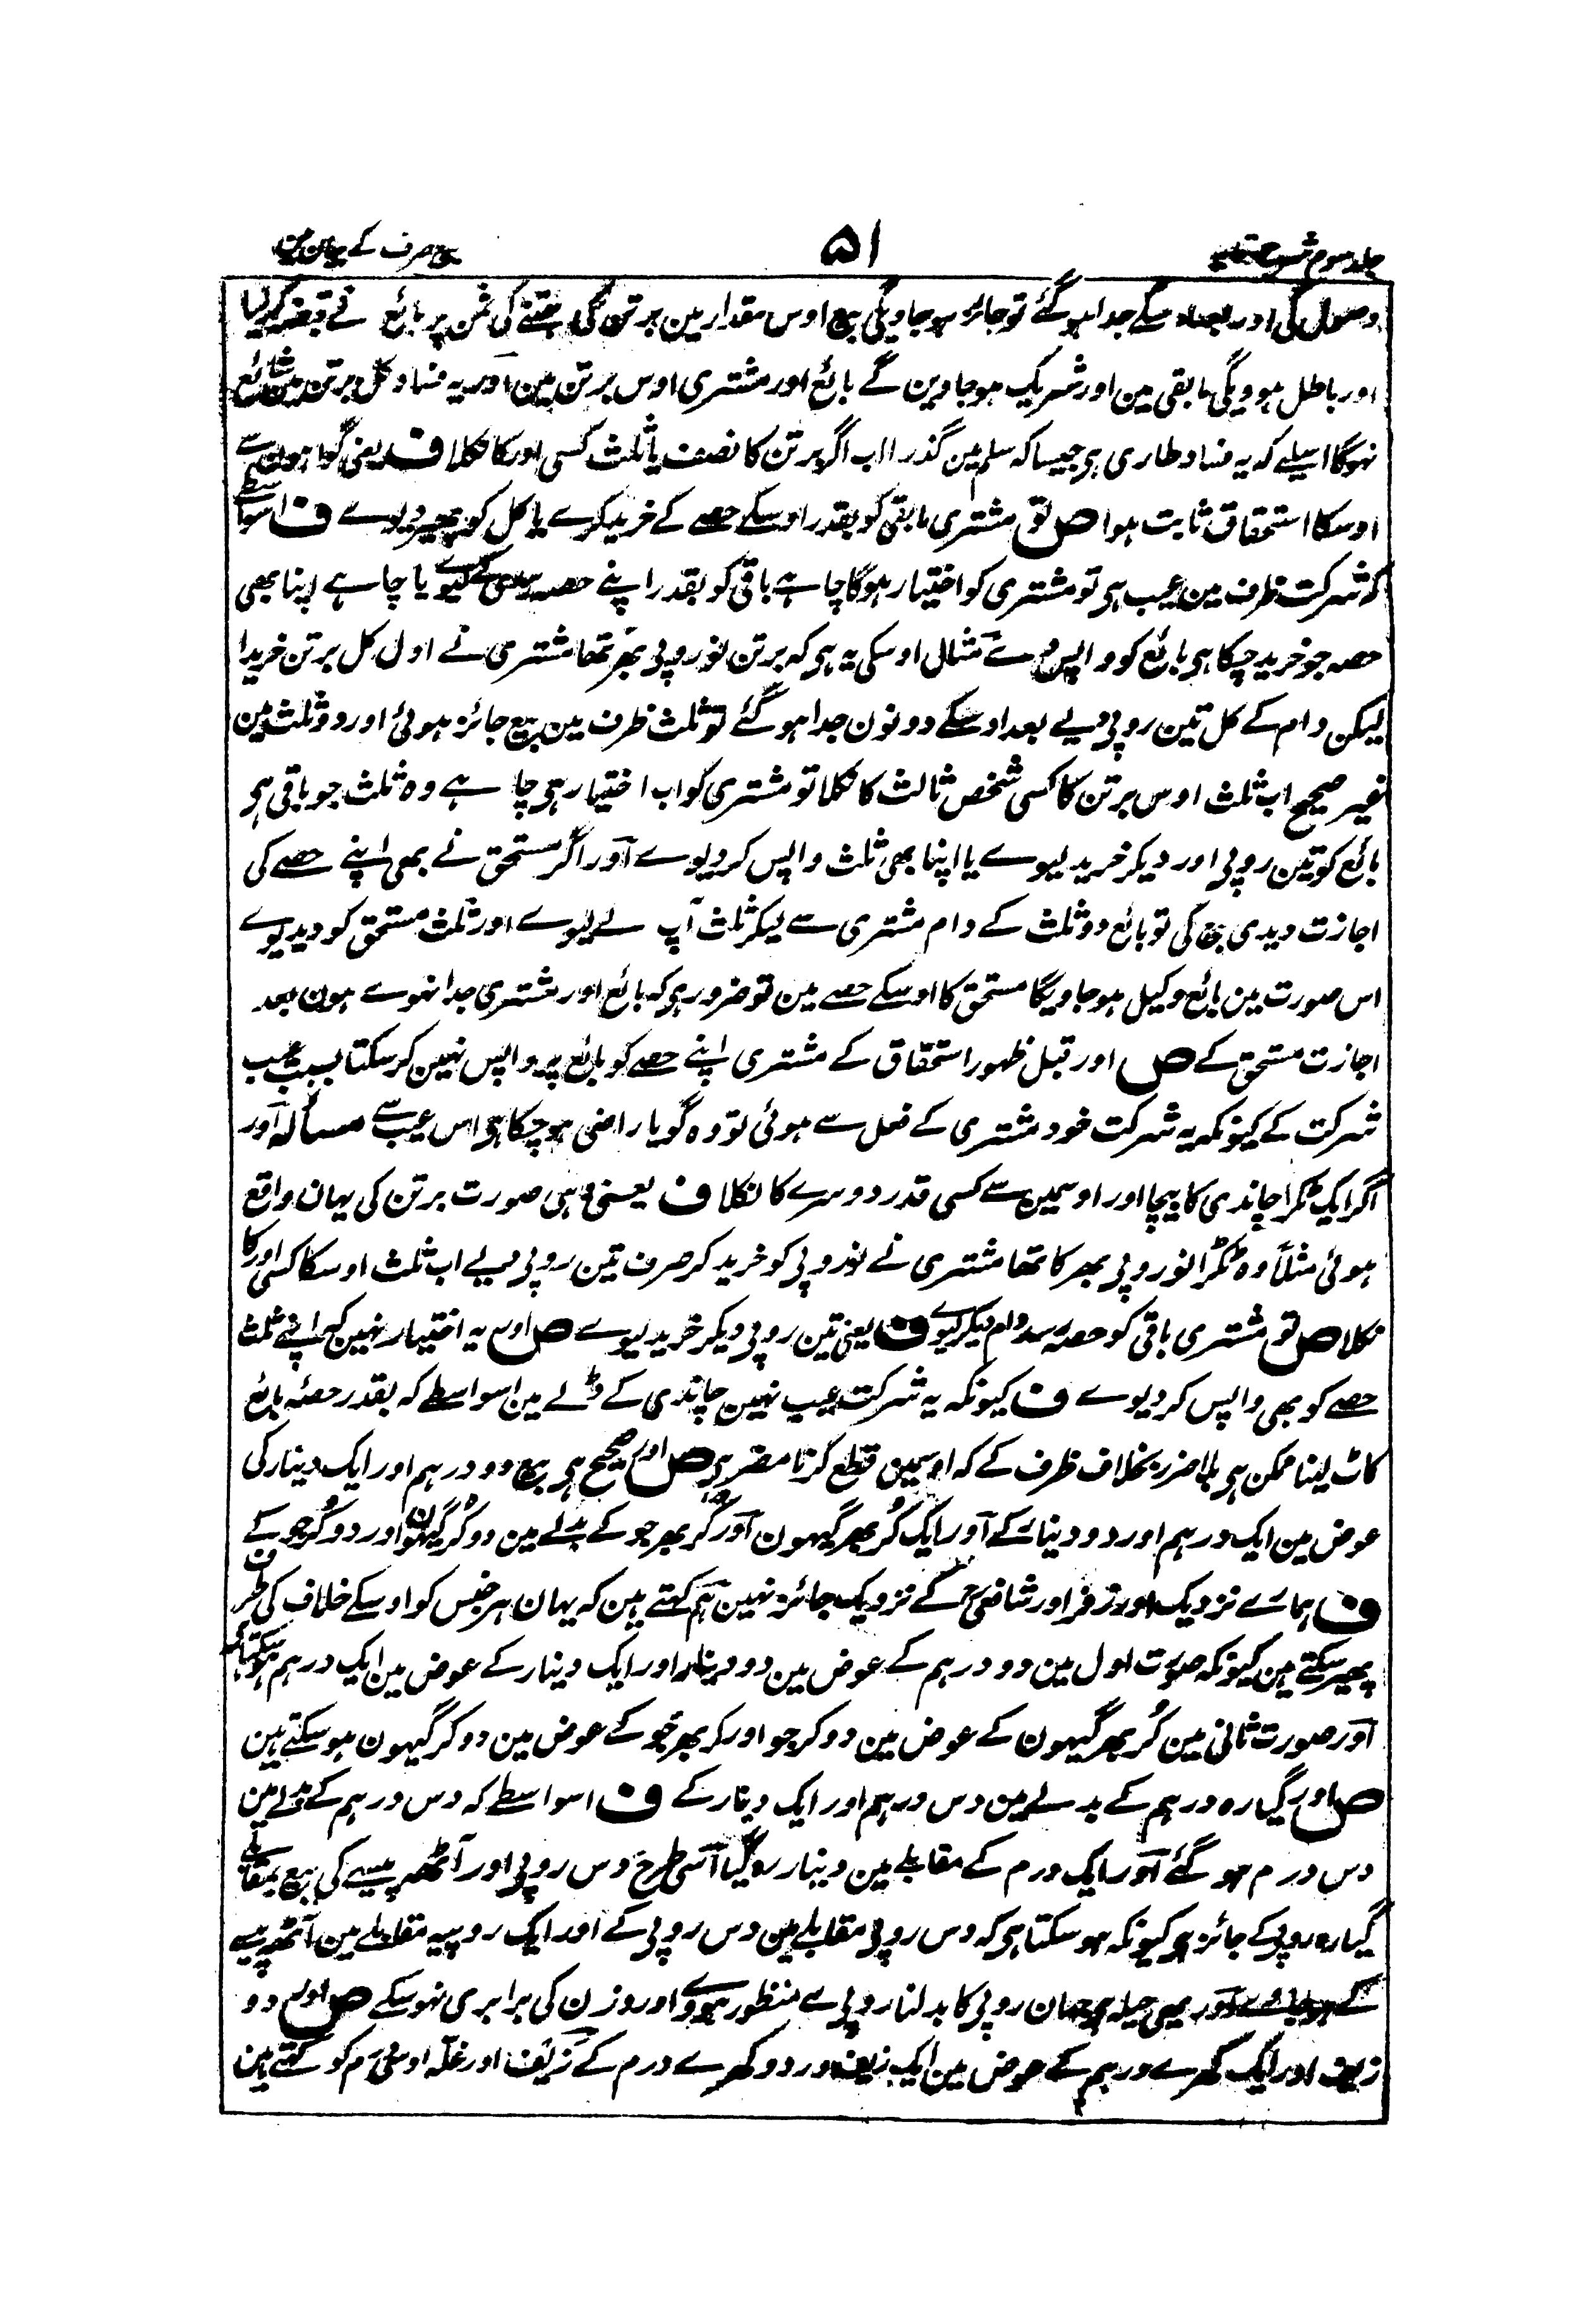 جلد سوم شرح وقایہ
۵۱
بیع صرف کے بیان مین
وصول کی اور بعد اسکے جدا ہو گئے تو جائز ہو جاویگی بیع اوس مقدار مین برتن کی جتنے کی ثمن پر بائع نے قبضہ کر لیا
اور باطل ہوویگی مابقی مین اور شریک ہو جاوین گے بائع اور مشتری اوس برتن مین اور یہ فساد کل برتن مین شائع
نہوگا اسلیے کہ یہ فساد طاری ہی جیسا کہ سلم مین گذرا اب اگر برتن کا نصف یا ثلث کسی اور کا نکلا ف یعنی گواہون سے
اوسکا استحقاق ثابت ہوا ص تو مشتری مابقی کو بقدر اوسکے حصے کے خرید کرے یا کل کو پھیر دیوے ف اسواسطے
کہ شرکت ظرف مین عیب ہی تو مشتری کو اختیار ہوگا چاہے باقی کو بقدر اپنے حصہ رسدی کے لیوے یا چاہے اپنا بھی
حصہ جو خرید چکا ہی بائع کو واپس دے مثال اوسکی یہ ہی کہ برتن نو روپی بھر تھا مشتری نے اول کل برتن خریدا
لیکن دام کے کل تین روپی دیے بعد اوسکے دونون جدا ہو گئے تو ثلث ظرف مین بیع جائز ہوئی اور دو ثلث مین
غیر صحیح اب ثلث اوس برتن کا کسی شخص ثالث کا نکلا تو مشتری کو اب اختیار ہی چاہے وہ ثلث جو باقی ہی
بائع کو تین روپی اور دیکر خرید لیوے یا اپنا بھی ثلث واپس کر دیوے اور اگر مستحق نے بھی اپنے حصے کی
اجازت دیدی بیع کی تو بائع دو ثلث کے دام مشتری سے لیکر ثلث آپ لے لیوے اور ثلث مستحق کو دیدیوے
اس صورت مین بائع وکیل ہو جاویگا مستحق کا اوسکے حصے مین تو ضرور ہی کہ بائع اور مشتری جدا نہوے ہون بعد
اجازت مستحق کے ص اور قبل ظہور استحقاق کے مشتری اپنے حصے کو بائع پر واپس نہین کر سکتا بسبب عیب
شرکت کے کیونکہ یہ شرکت خود مشتری کے فعل سے ہوئی تو وہ گویا راضی ہو چکا ہی اس عیب سے مسألہ اور
اگر ایک ٹکڑا چاندی کا بیچا اور اوسمین سے کسی قدر دوسرے کا نکلا ف یعنی وہی صورت برتن کی یہان واقع
ہوئی مثلاً وہ ٹکڑا نو روپی بھر کا تھا مشتری نے نو روپی کو خرید کر صرف تین روپی دیے اب ثلث اوسکا کسی اور کا
نکلا ص تو مشتری باقی کو حصہ رسد دام دیکر لیوے ف یعنی تین روپی دیکر خرید لیوے ص اور یہ اختیار نہین کہ اپنے ثلث
حصے کو بھی واپس کر دیوے ف کیونکہ یہ شرکت عیب نہین چاندی کے ڈلے مین اسواسطے کہ بقدر حصئہ بائع
کاٹ لینا ممکن ہی بلا ضرر بخلاف ظرف کے کہ اوسمین قطع کرنا مضر ہی ص اور صحیح ہی بیع دو درہم اور ایک دینار کی
عوض مین ایک درہم اور دو دینار کے اور ایک کُر بھر گیہون اور کُر بھر جو کے بدلے مین دو کُر گیہون اور دو کُر جو کے
ف ہمارے نزدیک اور زفر اور شافعی کے نزدیک جائز نہین ہم کہتے ہین کہ یہان ہر جنس کو اوسکے خلاف کی طرف
پھیر سکتے ہین کیونکہ صورت اول مین دو درہم کے عوض مین دو دینار اور ایک دینار کے عوض مین ایک درہم ہو سکتا ہی
اور صورت ثانی مین کُر بھر گیہون کے عوض مین دو کر جو اور کر بھر جو کے عوض مین دو کر گیہون ہو سکتے ہین
ص اور گیارہ درہم کے بدلے مین دس درہم اور ایک دینار کے ف اسواسطے کہ دس درہم کے بدلے مین
دس درم ہو گئے اور ایک درم کے مقابلے مین دینار رہ گیا اسی طرح دس روپی اور آٹھ پیسے کی بیع بمقابلے
گیارہ روپی کے جائز ہی کیونکہ ہو سکتا ہی کہ دس روپی مقابلے مین دس روپی کے اور ایک روپیہ مقابلے مین آٹھ پیسے
کے ہو جاوے اور یہی حیلہ ہی جہان روپی کا بدلنا روپی سے منظور ہووے اور وزن کی برابری نہو سکے ص اور دو
زیف اور ایک کھرے درہم کے عوض مین ایک زیف اور دو کھرے درم کے زیف اور غلّہ اوس درم کو کہتے ہین